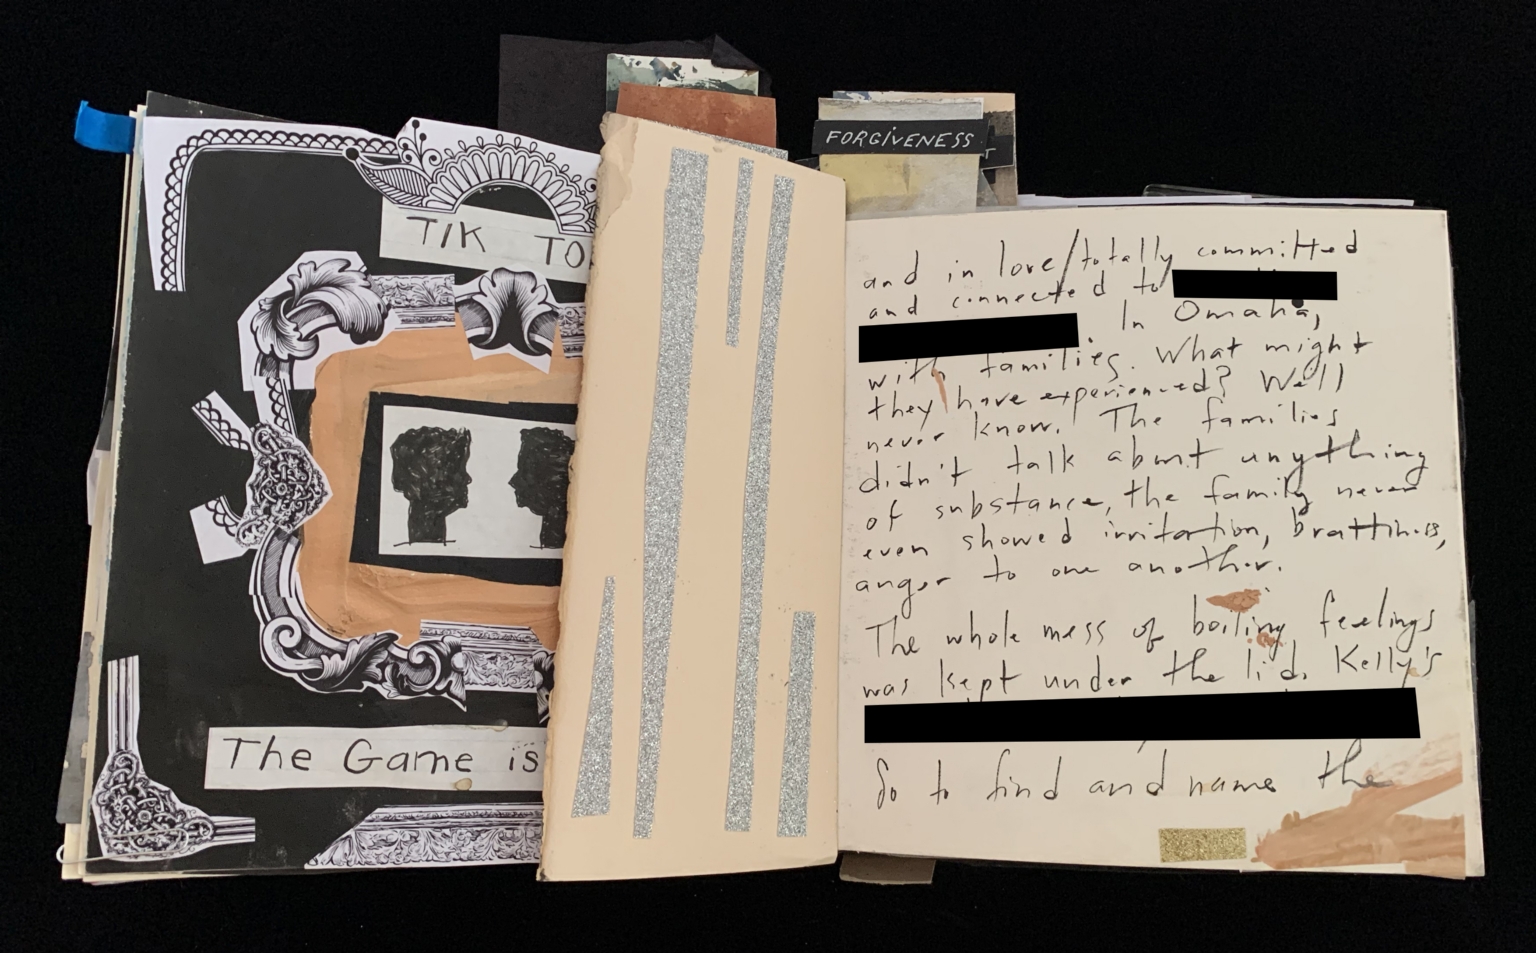 FORGIVENESS
T
TIK TO
The Game is
and in love/totally committed
and connected to
and
In Omaha,
with families. What might
they have experienced? We'll
never know. The families
didn't talk about anything
of substance, the family never
even showed irritation, brattiness,
anger to one another.
The whole mess of boiling feelings
was kept under the lid. Kelly's
So to find and name the